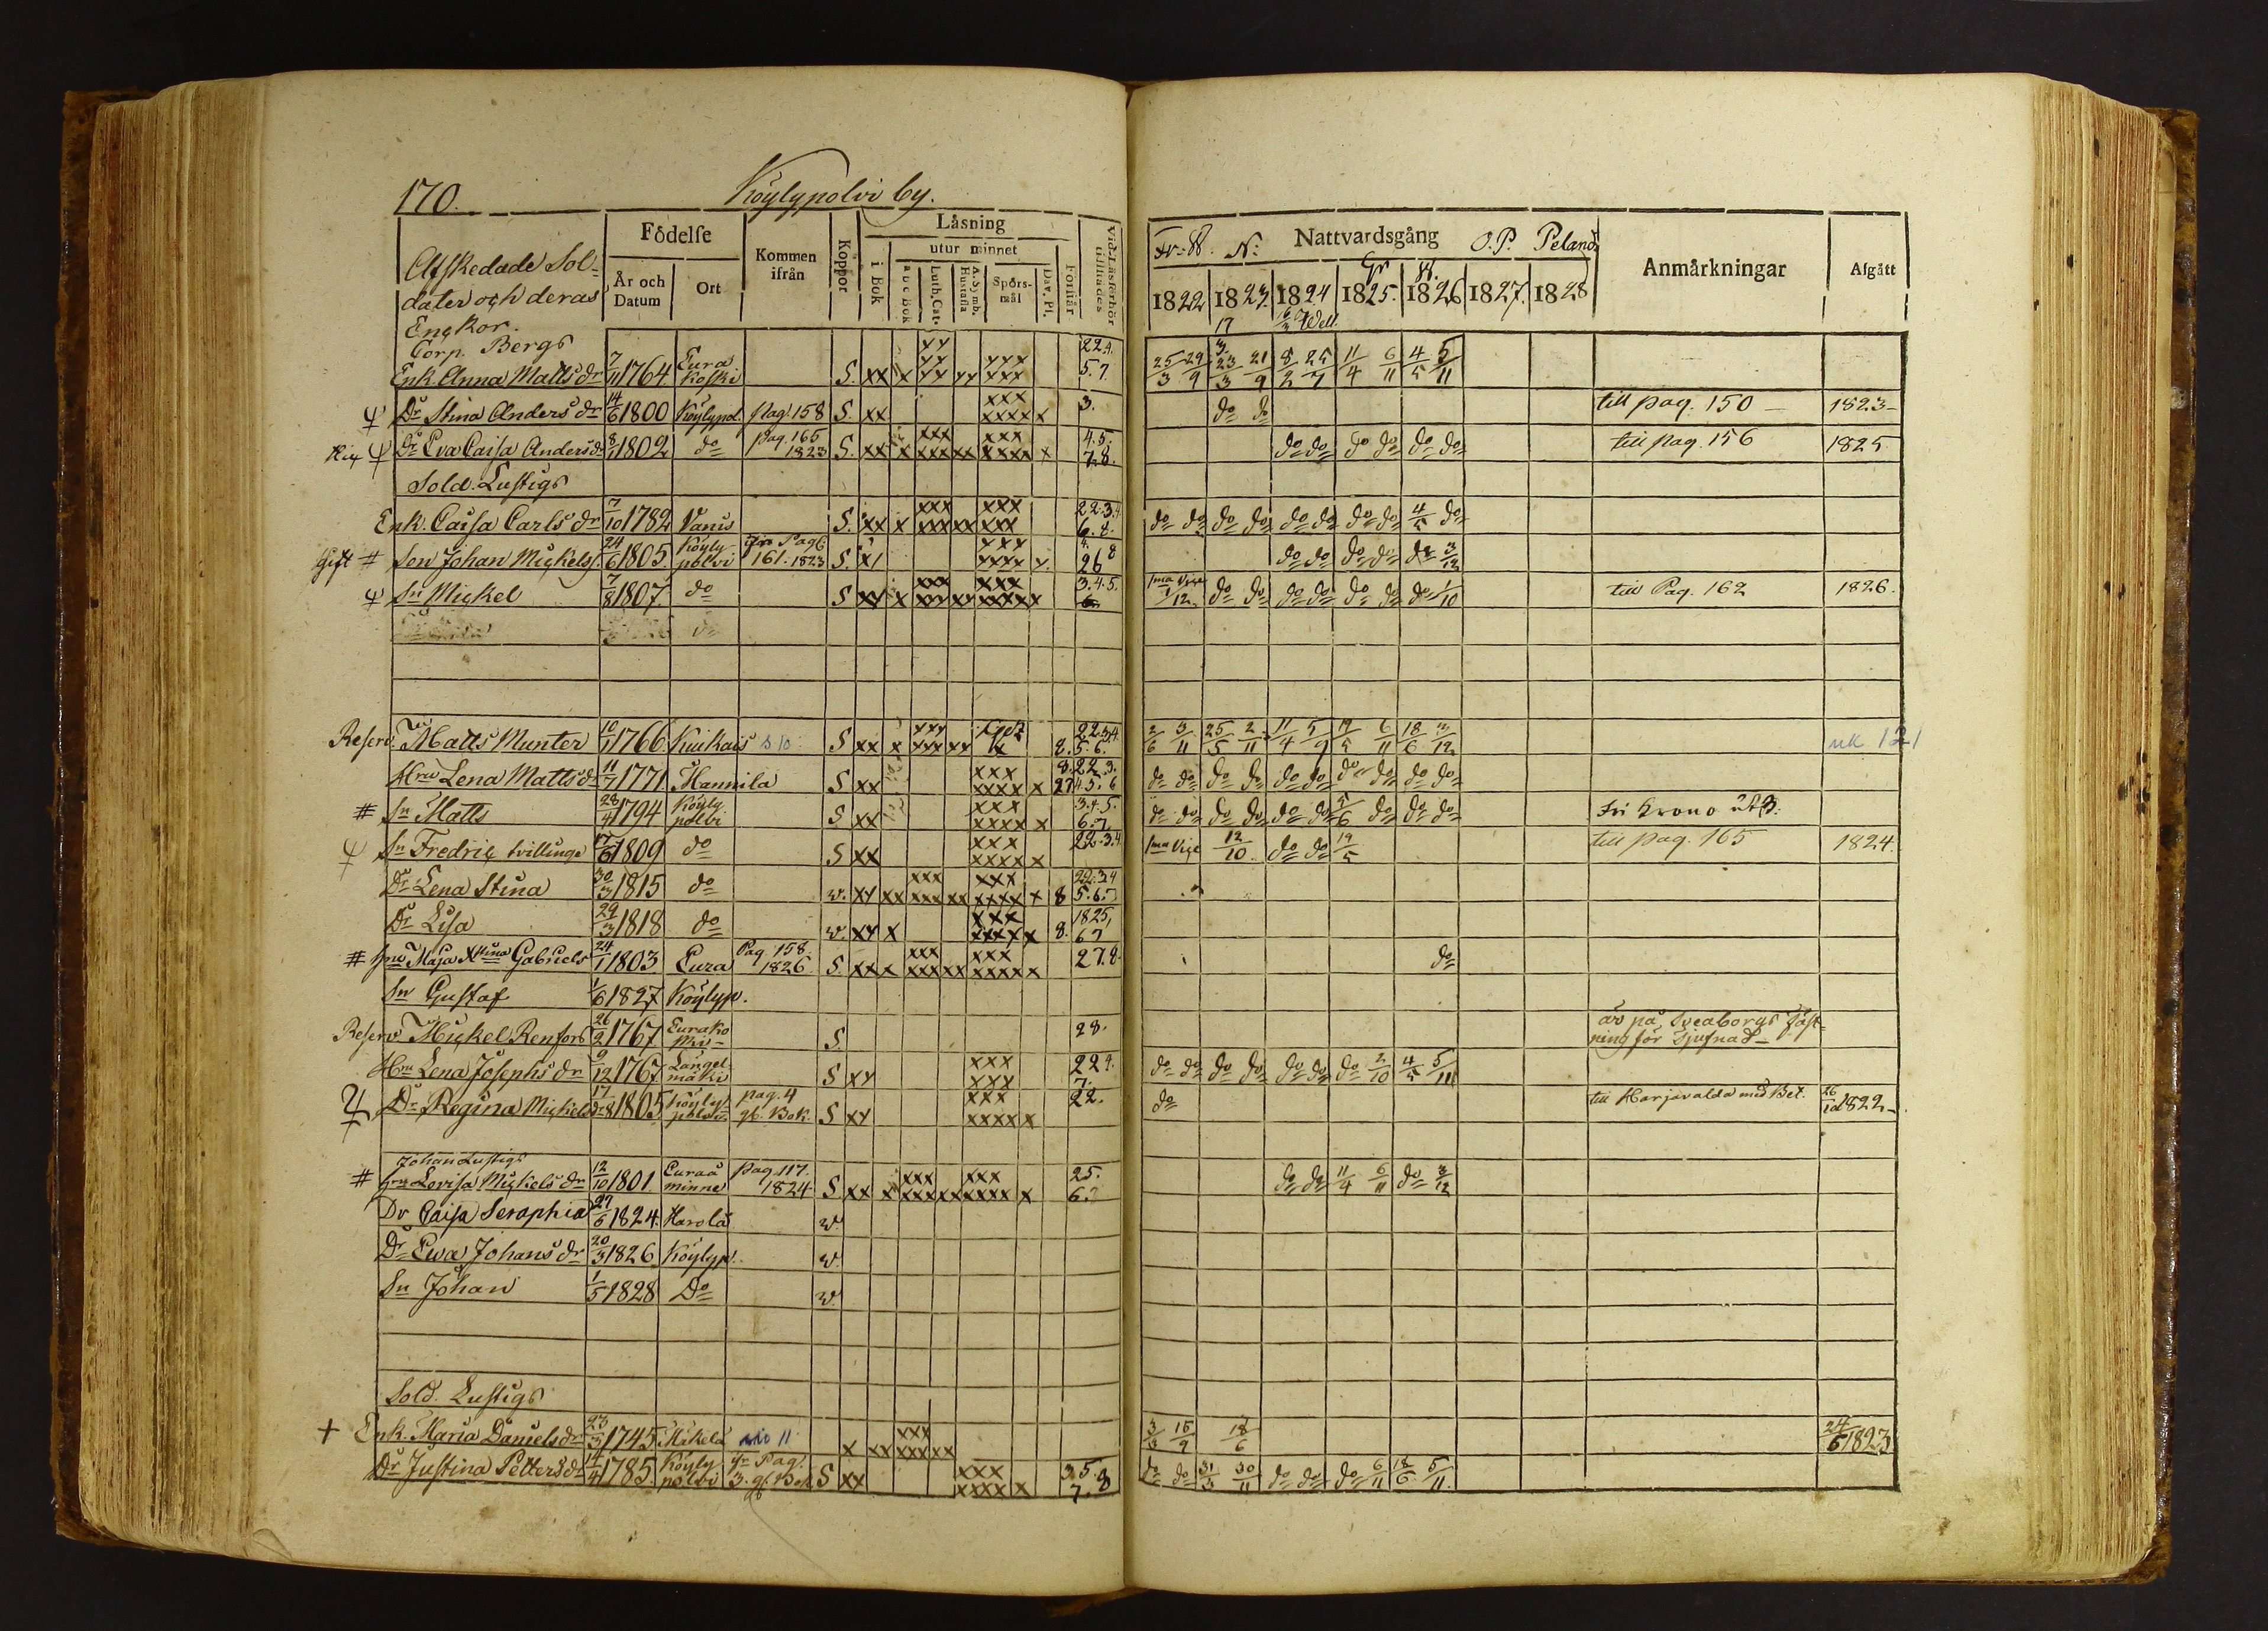 170. Köylypolvi by.
Afskedade Sol-
dater och deras
Enckor.
Födelse
År och Datum
Ort
Kommen ifrån
Koppor
Läsning
i Bok
utur minnet
a b c Bok
Luth. Cat.
A. Symb. Hustafla
Spörsmål
Dav. Ps.
Förstår
Vid Läsförhör tillstädes
Nattvardsgång O.P. Peland
1822 1823 1824 1825. 1826 1827. 1828
Anmärkningar
Afgått
Corp. Bergs 224.
Enk. Anna Matts dr 7/11 1764 Eura koski S. xx x xx xx xxx 5.7. 25/3 29/9 23/3 21/9 8/2 25/7 11/4 6/11 4/5 5/11
Dr Stina Anders dr 14/6 1800 Köylypol. pag. 158 S. xx xxx xxxx x 3. do do till pag. 150 1823
Dr Eva Caisa Anders dr 8/1 1802 do pag. 165 1823 S. xx x xxx xxxx xx xxxx x 4.5. 7.8. do do do do do do till pag. 156 1825
Sold. Lustigs
Enk. Caisa Carls dr 7/10 1782 Vanis S. xx x xxx xxx xx xxx 22.3.4 do do do do do do do do 4/5 do
Gift # Son Johan Mickelss. 24/6 1805. Köyly polvi 161. 1823 S. x/ xxx xxxx x. 268 do do do do do 3/12
Sn Mickel 7/8 1807. do S xx x xxx xx xx xxx xxxxx 3.4.5. 1ma 1/12. do do do do do do do 1/10 till Pag. 162 1826.
do
Reserv. Matts Munter 10/1 1766 Kiukais S xx x xxx xxx xx 8. 5.6. 2/6 3/11 25/5 2/11 11/4 5/9 6/11 18/6 3/12 uk 121
Hru Lena Matts dr 11/7 1771 Hannila S xx xxx xxxx x do do do do do do do do do do
# Sn Matts 28/4 1794 Köyly polvi S xx xxx xxxx x 3.4.5. 6.7. do do do do do do 5/6 do do do
Sn Fredric tvillinge 1809 do S xx xxx xxxx x 22.3.4 1ma 12/10. do do 19/5 till pag. 165 1824.
Dr Lena Stina 30/3 1815 do w. xx xx xxx xxx xx xxx xxxx x 8 22.34 5.6.7
Dr Lisa 29/3 1818 do w. xx x xxx xxxx x 8. 1825, 67
# Maja Gabriels 24/1 1803 Eura Pag. 158. 1826 S. xx x xxx xxxx xx xxx xxxxx 27.8. do
Sn Gustaf 1/6 1827 Köylyp.
Reserv. Mickel Renfors 26/2 1767 S. 28. är på Sveaborgs Fäst-
ning för Tjufnad
Hru Lena Josephs dr 9/12 1767. Längel mäki S xx xxx xxx 224. 7. do do do do do do do 2/10 4/5 5/11
Dr Regina Mickels dr 17/8 1805 Köyly polvi pag. 4 gl. Bok S xx xxx xxxx x 22. do till Harjavalda med Bet. 26/10 1822
Johan Lustigs
# Lovisa Mickels dr 12/10 1801 Euraå minne pag. 117. 1824 S xx x xxx xxxx xx xxx xxxx x 25. 6.7 do do 11/4 6/11 do 3/12
Dr Caisa Seraphia 27/6 1824. Harola w.
Dr Ewa Johans dr 20/3 1826 Köylyp. w.
Sn Johan 1/5 1828 Do w.
Sold. Lustigs
+ Enk. Maria Daniels dr 23/3 1745 Mikola x xx xxx xxxx xx 3/3 15/9 18/6 24/6 1823
Dr Justina Petters dr 14/4 1785 Köyly polvi Pag. 3. gl. Bok S xx xxx xxxx x 3.5. 7.8 do do 31/3 30/11 do do do 6/11 18/6 5/11.